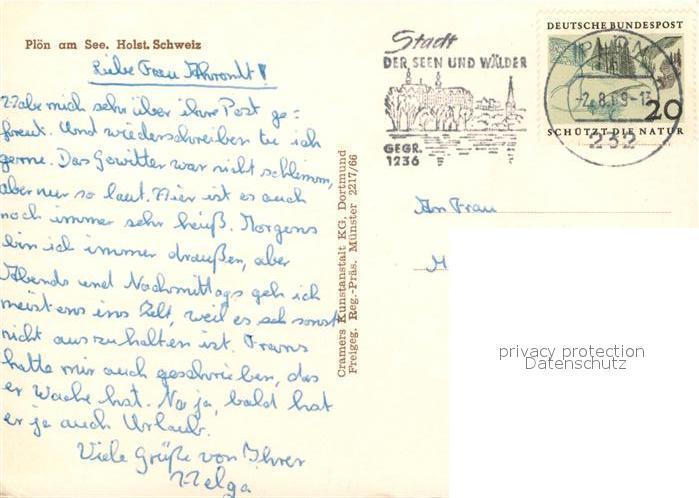 Plön am See. Holst. Schweiz
Liebe Frau
Habe mich sehr über ihre Post ge=
freut. Und wiederschreiben tu ich
gerne. Das Gewitter war nicht schlimm,
aber nur so laut. Hier ist es auch
noch immer sehr heiß. Morgens
bin ich immer draußen, aber
Abends und Nachmittags geh ich
meistens ins Zelt, weil es sch sonst
nicht auszuhalten ist. Frans
hatte mir auch geschrieben, das
er Wache hat. Na ja, bald hat
er ja auch Urlaub.
Viele Grüße von Ihrer
Helga
Cramers Kunstanstalt KG, Dortmund
Freigeg. Reg.-Präs. Münster 2217/66
Stadt
DER SEEN UND WÄLDER
GEGR.
1236
DEUTSCHE BUNDESPOST
20
SCHÜTZT DIE NATUR
PLÖN
-2.8.69-13
232
An Frau
M
privacy protection
Datenschutz